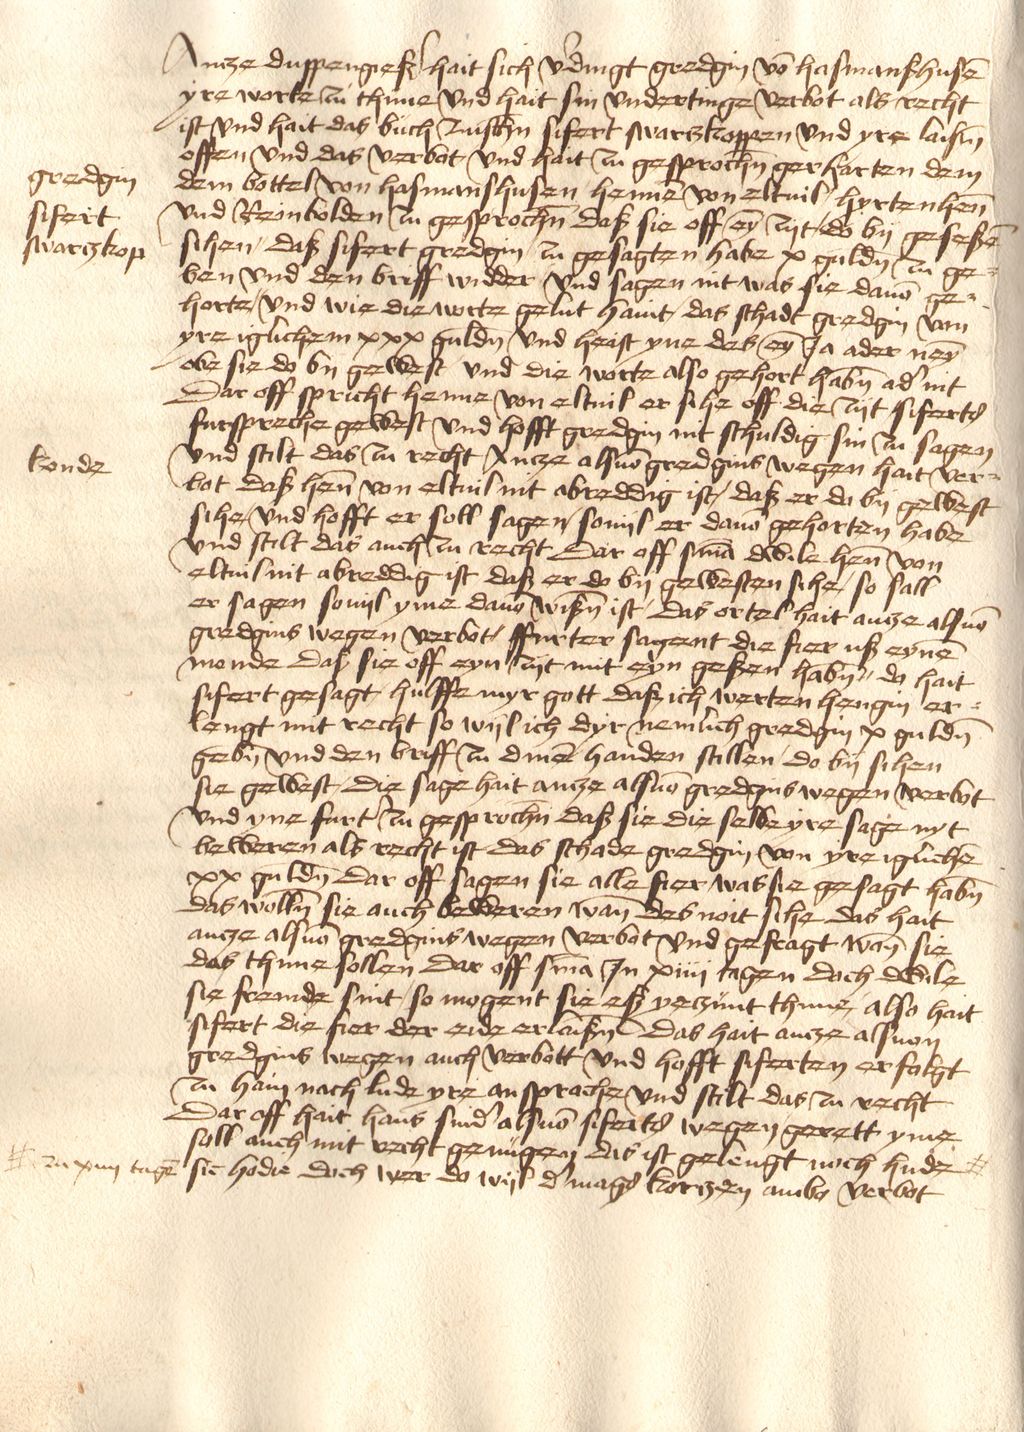 Ancze duppengießer hait sich v'dingt gredgin vō hasmanßhusē
yre worte zu thune und hait sin underdinge verbot als recht
ist und hait das buch zuschn sifert swartzkoppen und yre laißin
offen und das verbot und hait zu gesprochn gerharten dem
gredgin
sifert
swartzkop
dem bottel von hasmanshusen henne von eltuil hyrtenhen
und Reinbolden zu gesprochn daß sie off ey zijt do bij geseßē
sihen daß sifert gredgin zu gesagten habe x guldn zu ge-
ben und den briff widder und sagen nit was sie dauō ge-
horte und wie die worte gelut haint das schadt gredgin van
yre iglichem xxx guldn und heist yne des ey Ja ader neyn
obe sie do bij gewest und die worte also gehort habn ad' nit
Dar off spricht henne von eltuil er sihe off die zijt siferts
fursprече gewest und hofft gredgin nit schuldig sin zu sagen
konde
und stilt das zu recht Ancze alsuō gredgins wegen hait ver-
bot daß hen von eltuil nit abreddig ist daß er do bij gewest
sihe und hofft er soll sagen souijl er dauō gehorten habe
und stilt das auch zu recht Dar off snia dwile hen von
eltuil nit abreddig ist daß er do bij gewesten sihe so sall
er sagen souijl yme dauō wißn ist das ortel hait ancze alsuō
gredgins wegen verbot ffurter sagent die fier uß eynē
monde daß sie off eyn zijt mit eyn geßen habn do hait
sifert gesagt hulffe myr gott daß ich werten hengin er-
lengt mit recht so wijl ich dyr nemlich gredgin x guldn
gebn und den briff zu dinē handen stillen do bij sihen
sie gewest die sage hait ancze alsuō gredgins wegen verbot
und yne furt zu gesprochn daß sie die selbe yre sage nyt
beweren als recht ist das schade gredgin von yre iglichē
xx guldn Dar off sagen sie alle fier was sie gesagt habn
das wolln sie auch beweren wan des noit sihe das hait
ancze alsuō gredgins wegen verbot und gefragt wan sie
das thune sollen Dar off snia In xiiii tagen doch dwile
sie fremde sint so mogent sie eß yeczunt thune also hait
sifert die fier der eide erlaißn Das hait ancze alsuon
gredgins wegen auch verbott und hofft siferten erfolgt
zu hain nach lude yre ansprache und stilt das zu recht
Dar off hait hans snid' alsuō siferts wegen gerett yme
soll auch mit recht genugen das ist gelengt noch hude #
# zu xiiii tagē sic hodie doch wer do wijl d' mags kortzen ambo verbot